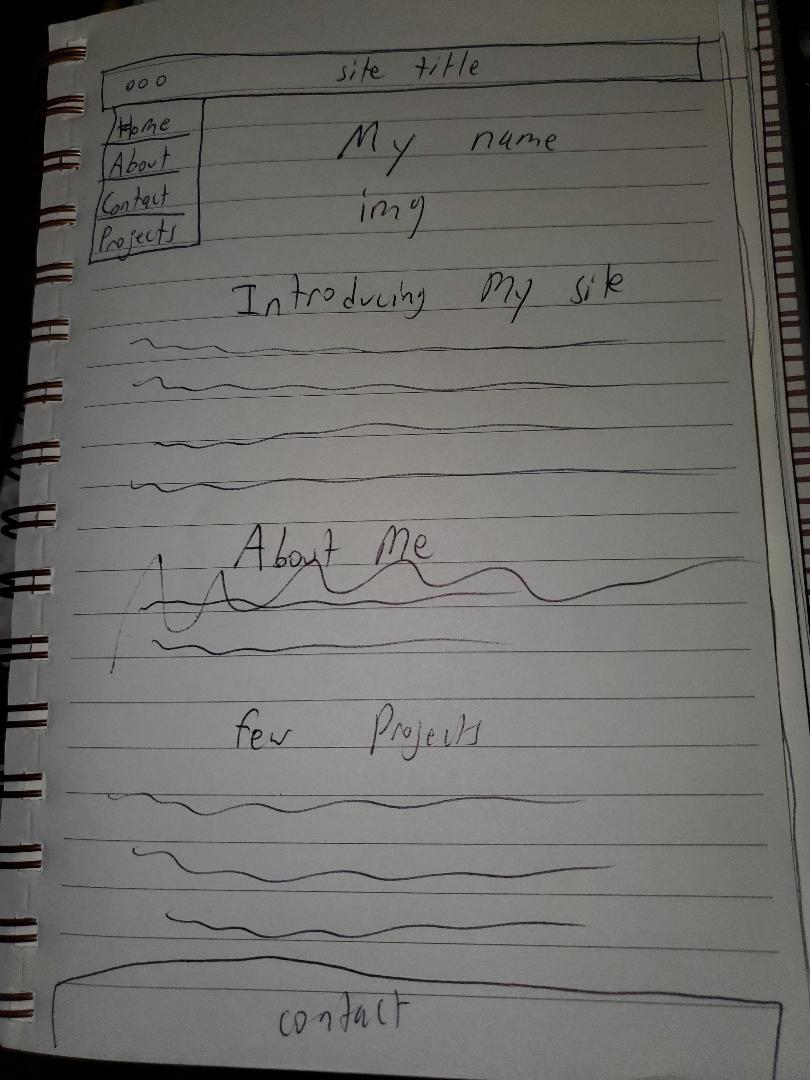 site title
Home
About
Contact
Projects
My name
img
Introducing My site
About Me
few Projects
contact